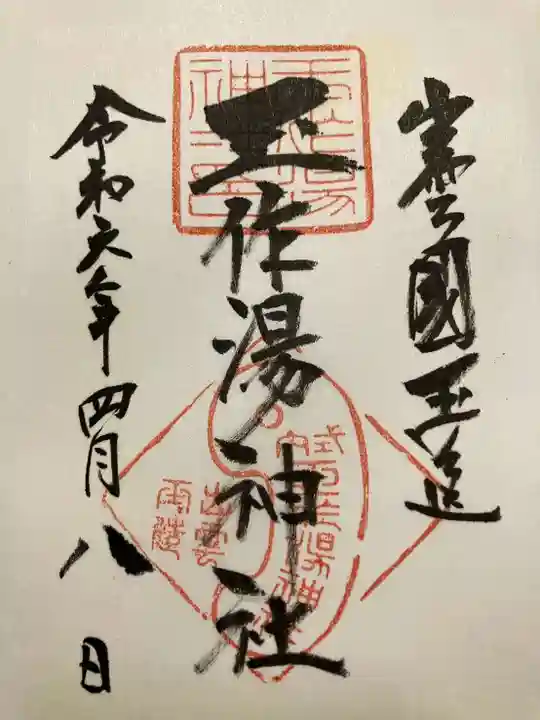 出雲國玉造
玉作湯神社
令和六年四月八日
式内
玉作湯神社
出雲
玉造